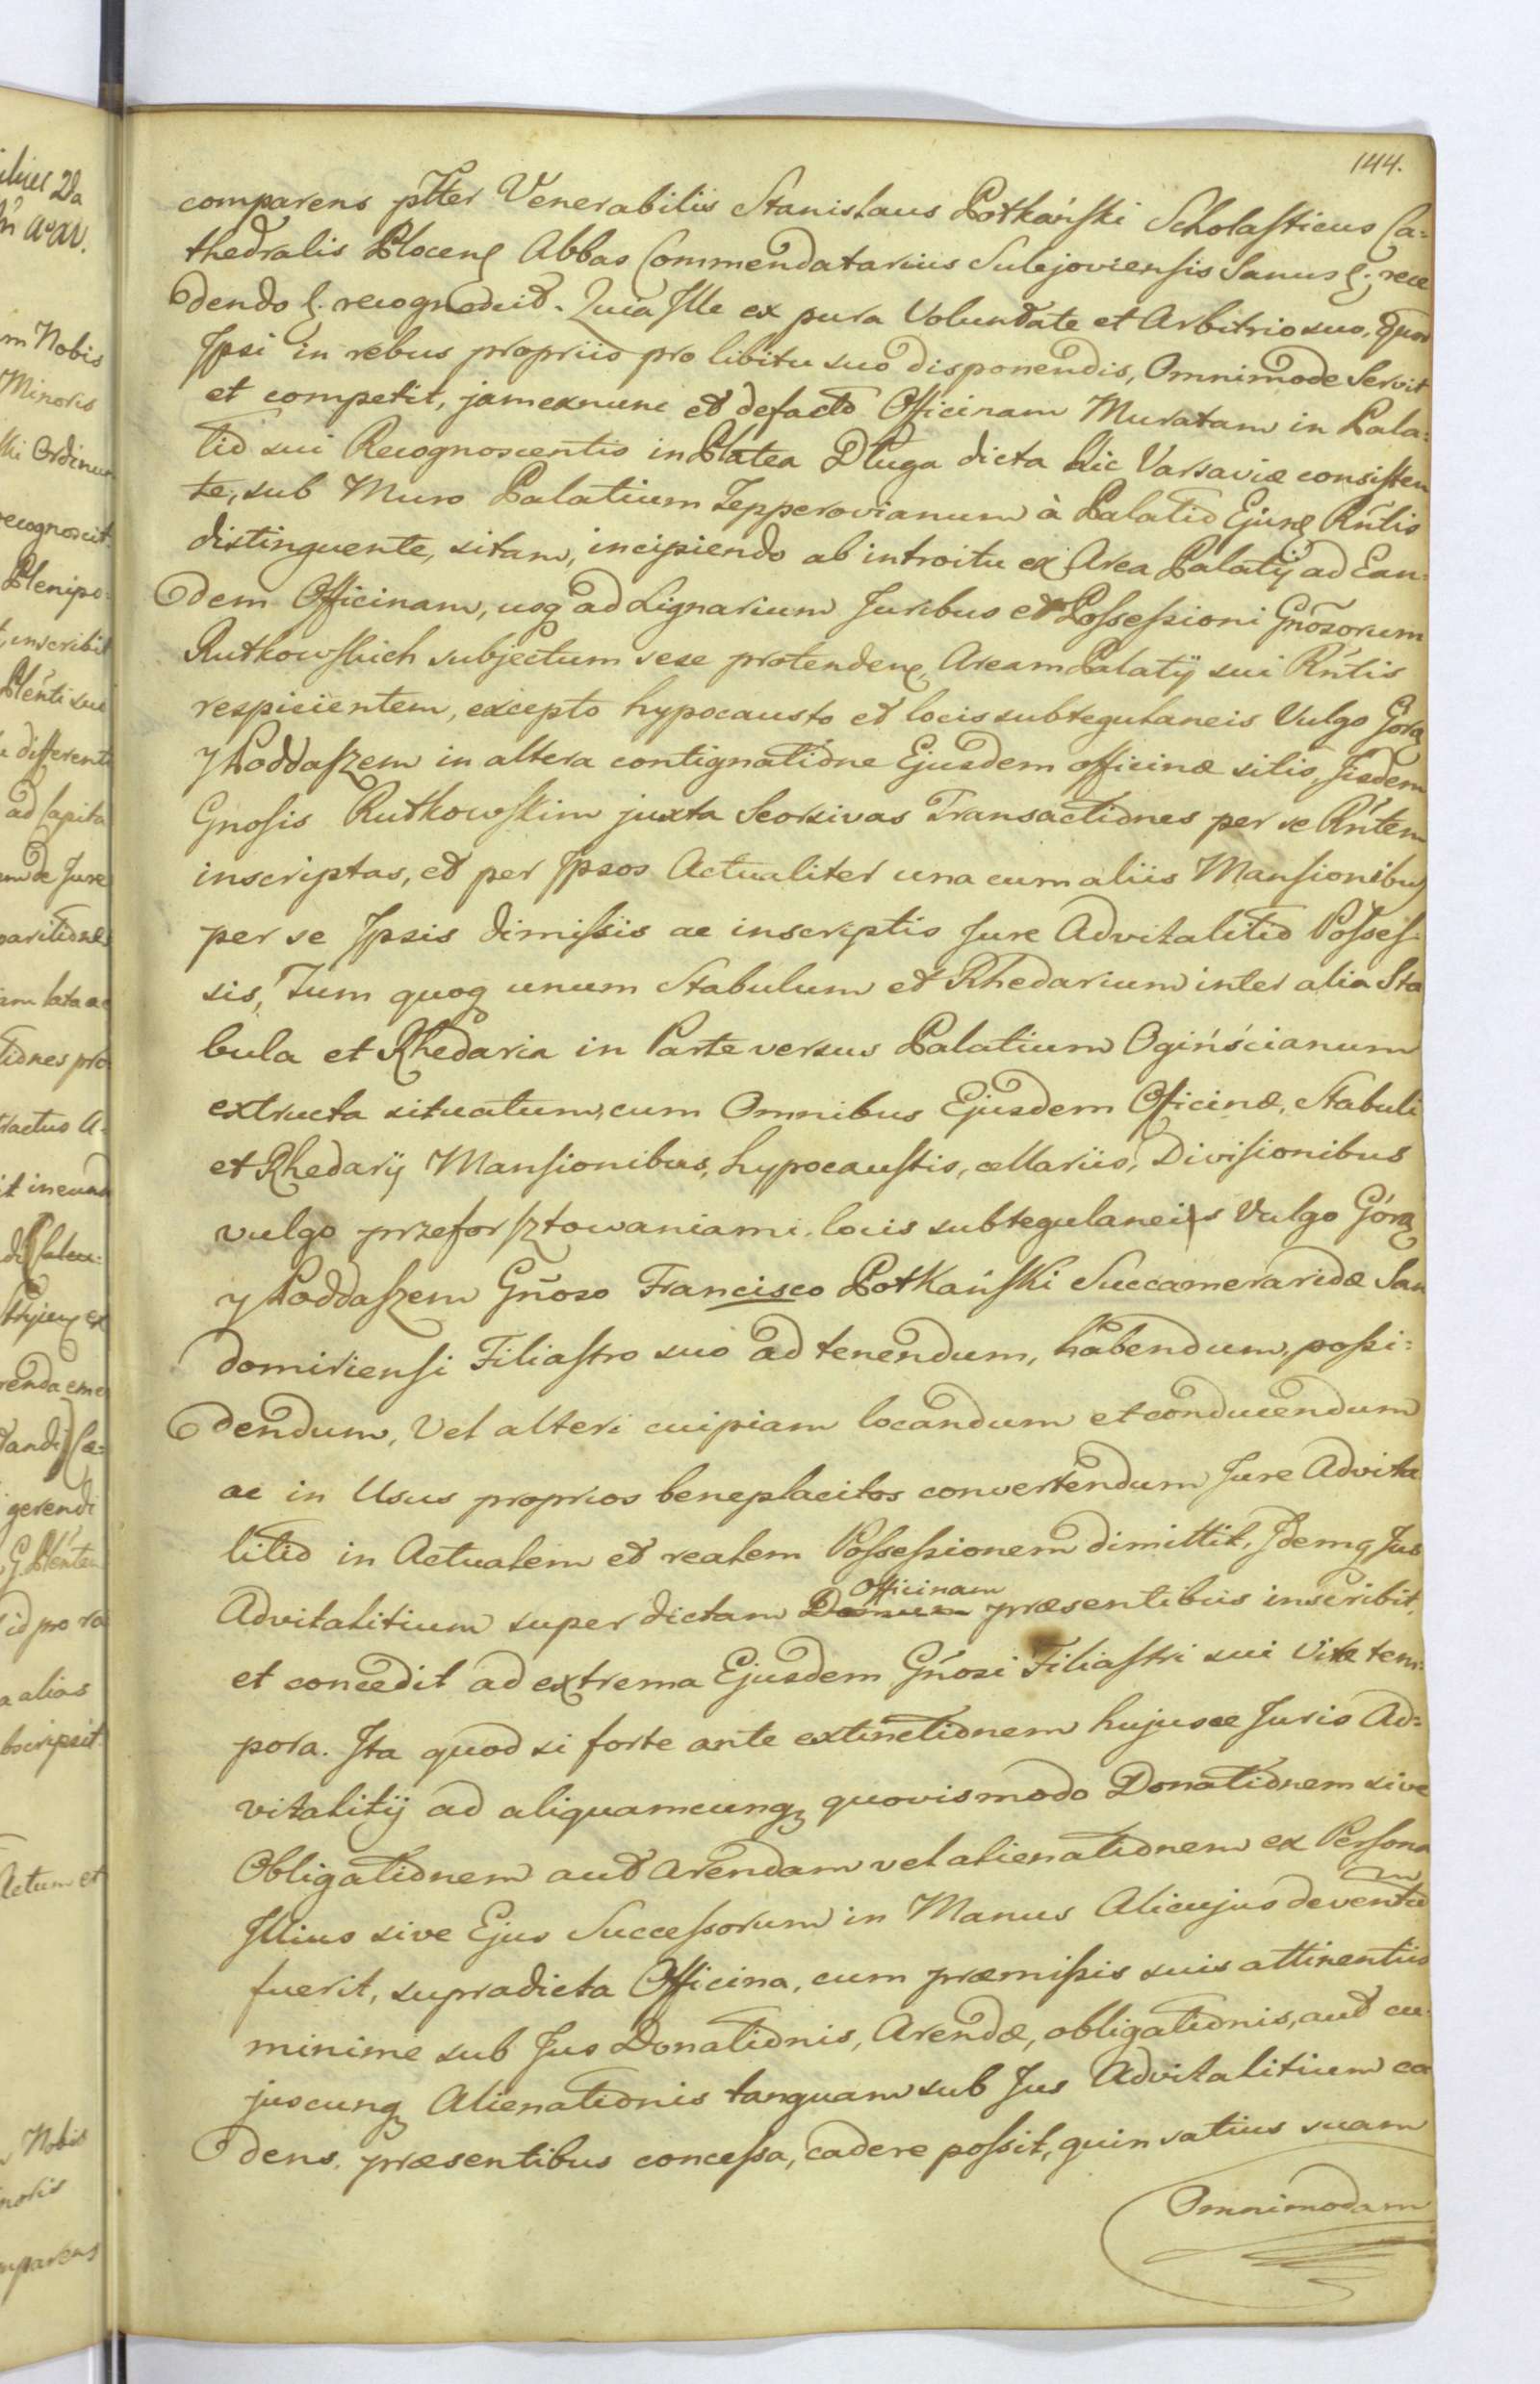 144.
comparens ptter Venerabilis Stanislaus Potkański Scholasticus Ca=
thedralis Plocens Abbas Commendatarius Sulejoviensis Sanus &; rece
dendo &. recognovit. Quia Ille ex pura Voluntate et Arbitrio suo, quod
Ipsi in rebus propriis pro libitu suo disponendis, Omnimode Servit
et competit, jamexnunc et defacto Officinam Muratam in Pala=
tio sui Recognoscentis in Platea Długa dicta hic Varsaviæ consisten
te, sub Muro Palatium Tepperovianum à Palatio Ejusq Rñtis
distinguente, sitam, incipiendo ab introitu ex Area Palatij ad Ean=
dem Officinam, usq ad Lignarium Juribus et Possessioni Gñosorum
Rutkowskich subjectum sese protendens, Aream Palatij sui Rñtis
respicientem, excepto hypocausto et locis subtegulaneis Vulgo Górą
y Poddaszem in altera contignatione Ejusdem officinæ sitis, Iisdem
Gnosis Rutkowskim juxta Seorsivas Transactiones per se Rñtem
inscriptas, et per Ipsos Actualiter una cum aliis Mansionibus
per se Ipsis dimissis ac inscriptis Jure Advitalitio Posses=
sis, Tum quoq unum Stabulum et Rhedarium inter alia Sta
bula et Rhedaria in Parte versus Palatium Ogińścianum
extructa situatum, cum Omnibus Ejusdem Officinæ, Stabuli
et Rhedarij Mansionibus, hypocaustis, cellariis, Divisionibus
vulgo przeforsztowaniami, locis subtegulaneis Vulgo Górą
y Poddaszem Gñoso Francisco Potkański Succameraridæ San
domiriensi Filiastro suo ad tenendum, habendum, possi=
dendum, Vel alteri cuipiam locandum et conducendum
ac in Usus proprios beneplacitos convertendum Jure Advita
litio in Actualem et realem Possessionem dimittit, Idemq Jus
Officinam
Advitalitium super dictam Domum præsentibus inscribit,
et concedit ad extrema Ejusdem Gñosi Filiastri sui Vitæ tem=
pora. Ita quod si forte ante extinctionem hujusce Juris Ad=
vitalitij ad aliquamcunq quovismodo Donationem sive
Obligationem aut Arendam vel alienationem ex Persona
Illius sive Ejus Successorum in Manus Alicujus deventū
fuerit, supradicta Officina, cum præmissis suis attinentiis
minime sub Jus Donationis, Arendæ, obligationis, aut cu=
juscunq Alienationis tanquam sub Jus Advitalitium ca
dens, præsentibus concessa, cadere possit, quin satius suam
Omnimodam